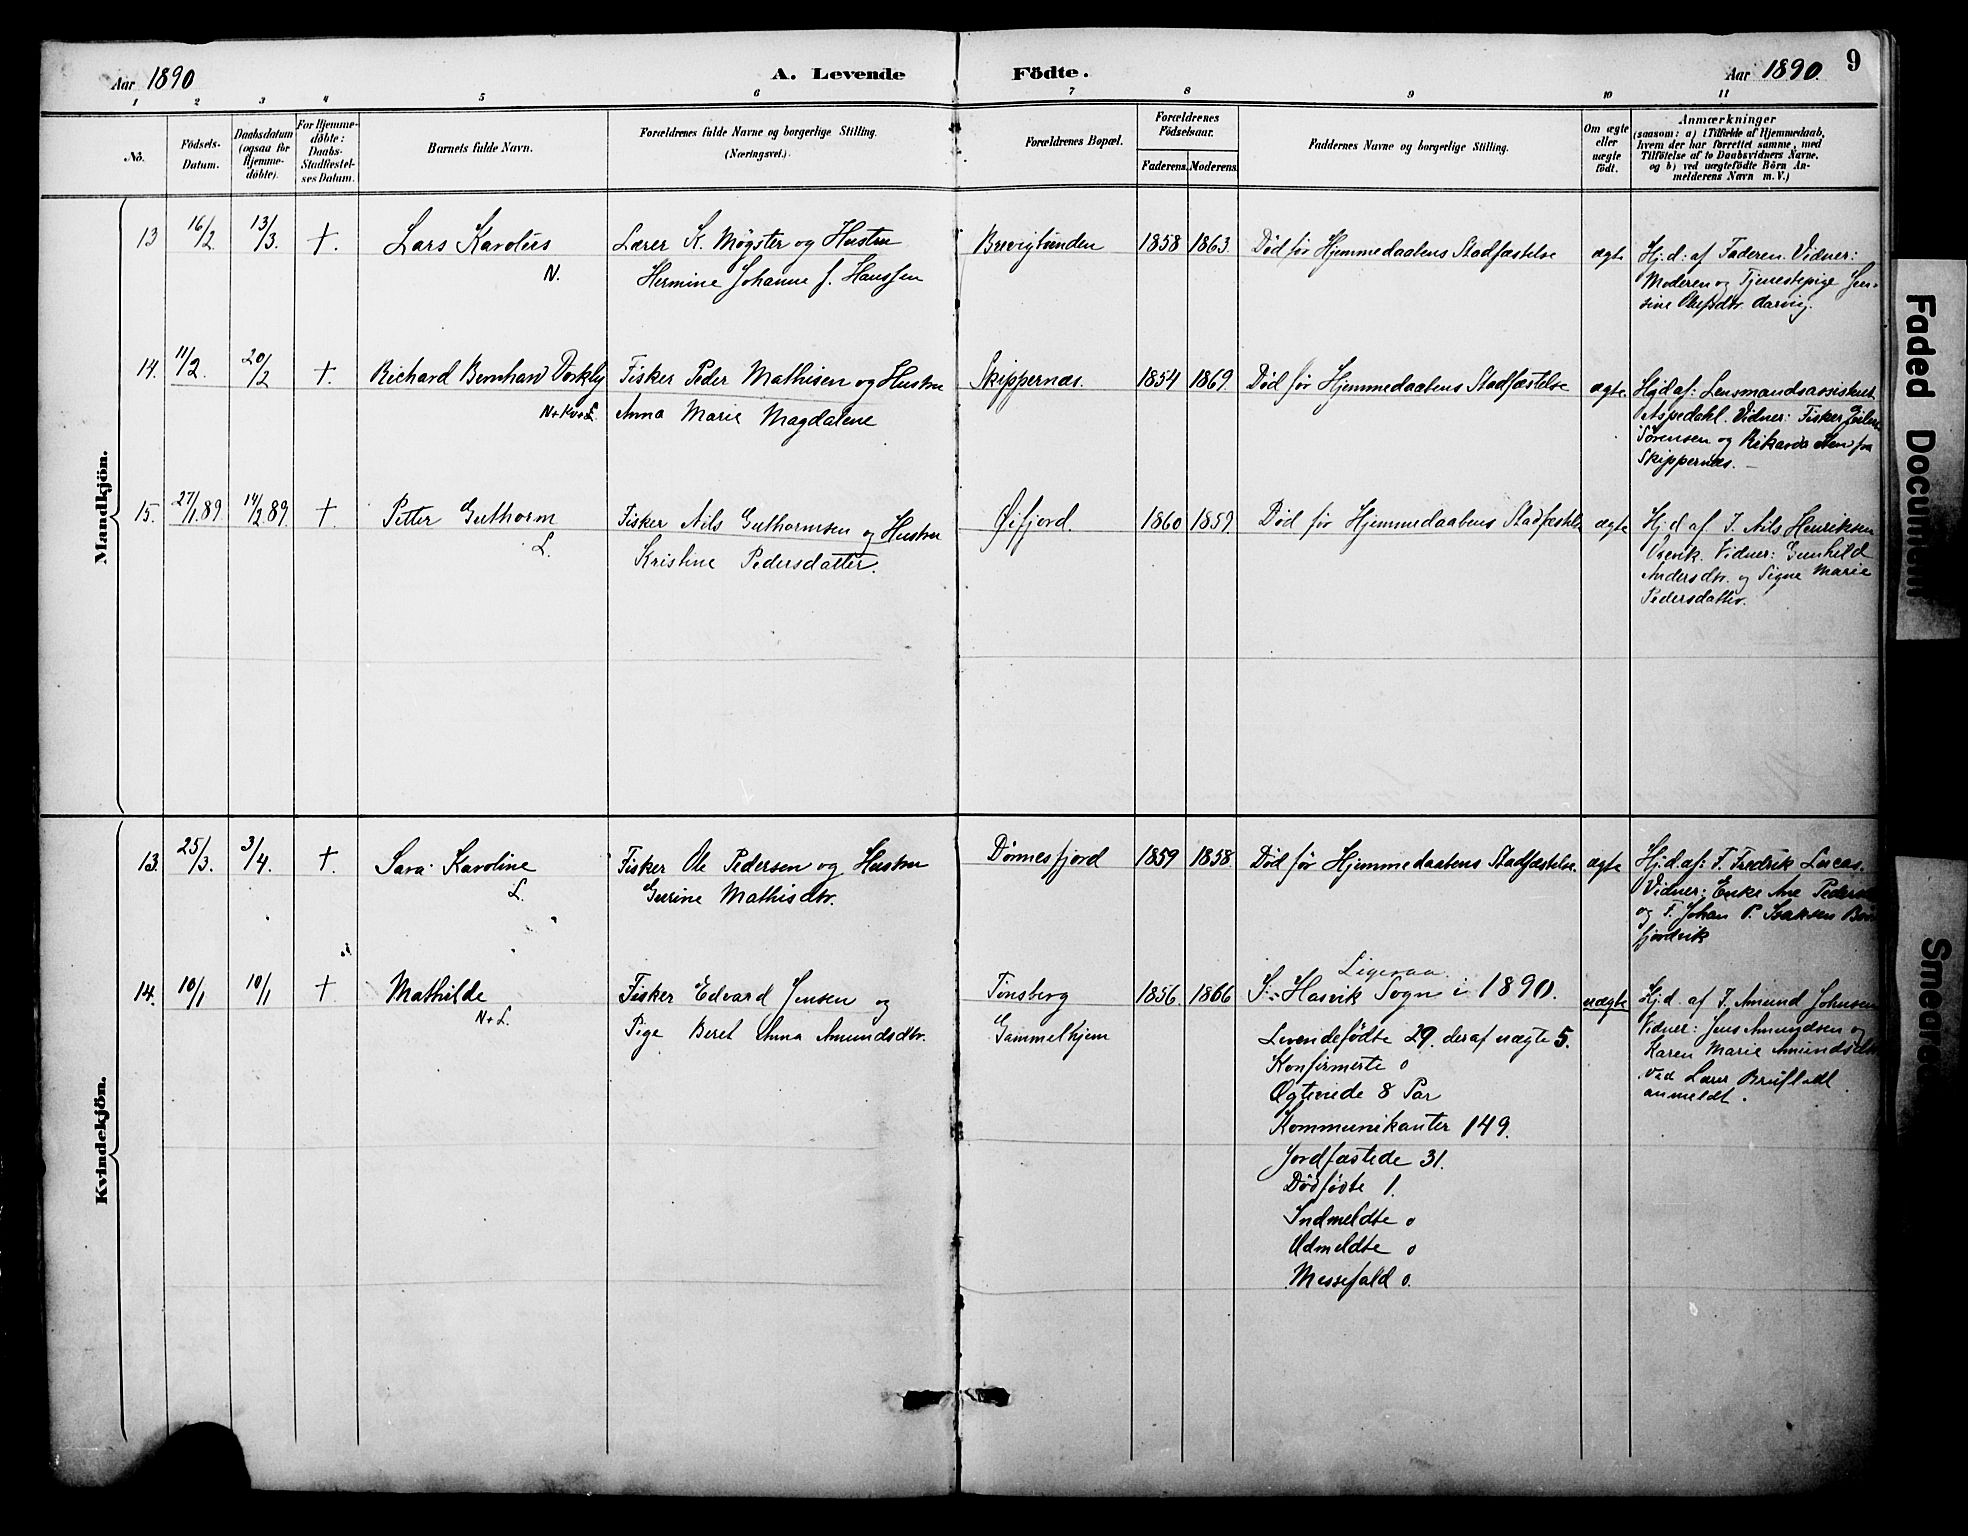 Aar 1890 A. Levende Födte. Aar 1890. 9
1 2 3 4 5 6 7 8 9 10 11
No.
Födsels-
Datum.
Daabsdatum
(ogsaa for
Hjemme-
döbte).
For Hjemme-
döbte:
Daabs-
Stadfæstel-
ses Datum.
Barnets fulde Navn.
Forældrenes fulde Navne og borgerlige Stilling.
(Næringsvei.)
Forældrenes Bopæl.
Forældrenes
Födselsaar.
Faderens. Moderens.
Faddernes Navne og borgerlige Stilling.
Om ægte
eller
uægte
födt.
Anmærkninger
(saasom: a) i Tilfælde af Hjemmedaab,
hvem der har forrettet samme, med
Tilföielse af to Daabsvidners Navne,
og b) ved uægtefödte Börn An-
melderens Navn m. V.)
Mandkjön.
13 16/2 13/3. +. Lars Karolus
N.
Lærer K. Møgster og Hustru
Hermine Johanne f. Hanssen
Brevigbunden 1858 1863. Død før Hjemmedaabens Stadfæstelse ægte
Hj.d: af Faderen. Vidner:
Moderen og Tjenestepige Jen-
sine
14. 11/2. 20/2 +. Richard Bernhard
N+Kv+L.
Fisker Peder Mathisen og Hustru
Anna Marie Magdalene
Skippernæs. 1854 1869. Død før Hjemmedaabens Stadfæstelse ægte.
Hj.d af: Lensmandsassistent
Aspedahl. Vidner: Fisker
Sørensen og Rikarda fra
Skippernæs. —
15. 27/1.89 14/2 89 +. Petter Guthorm
L.
Fisker Nils Guthormsen og Hustru
Kristine Pedersdatter.
Øifjord. 1860 1859. Død før Hjemmedaabens Stadfæstelse ægte
Hj.d. af F. Nils Henriksen
Vidner: Gunhild
Andersdtr. og Signe Marie
Pedersdatter.
Kvindekjön.
13. 25/3. 3/4. + Sara Karoline
L.
Fisker Ole Pedersen og Hustru
Gurine Mathisdtr.
Dönnesfjord 1859 1858. Død før Hjemmedaabens Stadfæstelse. ægte
Hj.d.af: F. Fredrik Lucas.
Vidner: Enke Ane
og F. Johan P. Isaksen
fjordvik
14. 10/1 10/1 + Mathilde
N+L.
Fisker Edvard Jensen og
Pige Beret Anna Amundsdtr.
Tønsberg
Gammelhjem
1856. 1866
Ligesaa
S: Hasvik Sogn i 1890.
Levendefødte 29. deraf uægte 5.
Konfirmerte 0
Ægteviede 8 Par
Kommunikanter 149.
Jordfæstede 31.
Dødfødte 1.
Indmeldte 0
Udmeldte 0
Messefald 0.
uægte
Hj.d. af F. Amund Johnsen
Vidner: Jens Amundsen og
Karen Marie Amundsdtr
ved Lærer
anmeldt.
Faded Document
Smeared